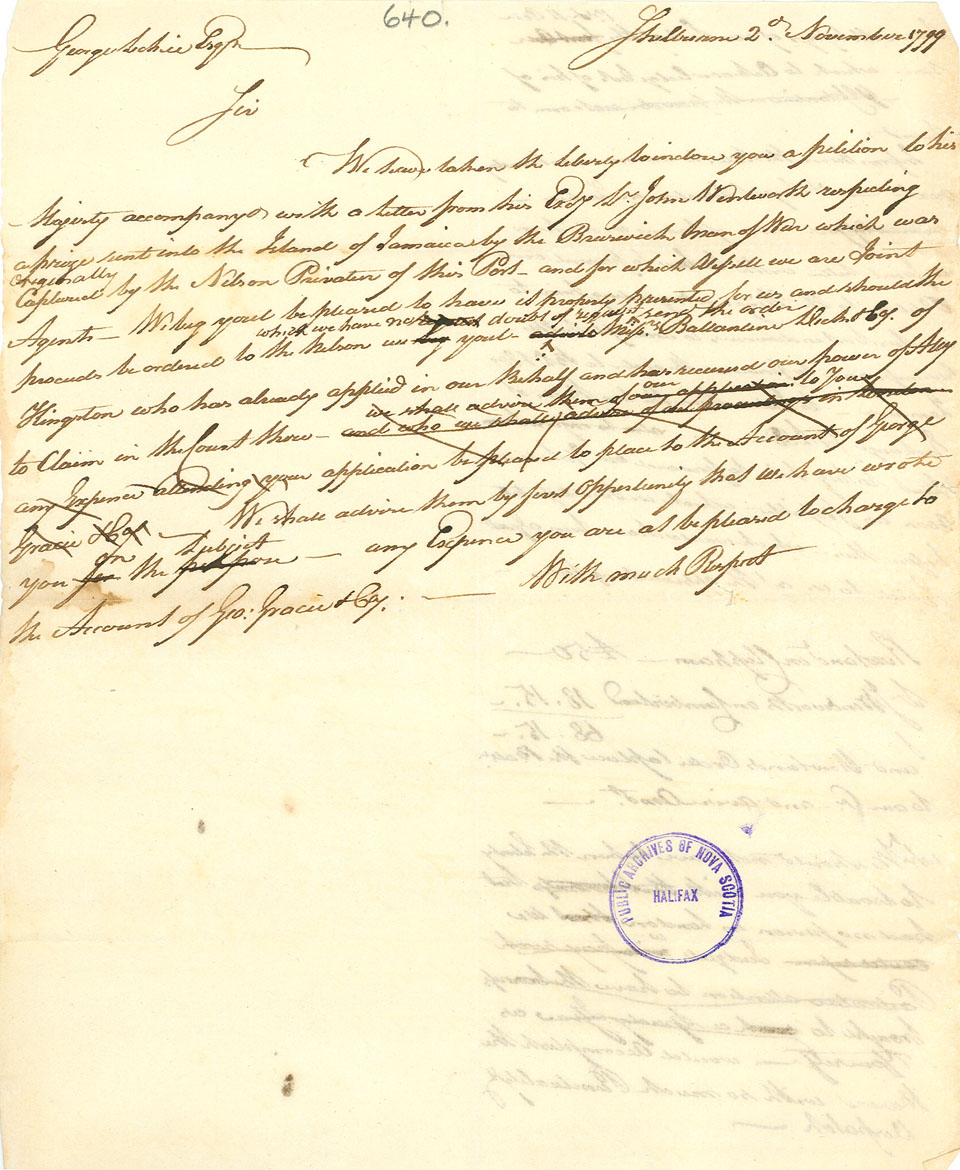 640.
George Leckie Esqr
Shelburne 2d. November 1799
Sir
We have taken the liberty to inclose you a petition to his
Majesty accompanyd with a Letter from his Excy Sr. John Wentworth respecting
a prize sent into the Island of Jamaica by the Brunswick Man of War which was
Origionally
Captured by the Nelson Privateer of this Port — and for which Vessell we are Joint
Agents — We beg you'l be pleased to have it properly presented for us and should the
which we have no doubt of request send the order
proceeds be ordered to the Nelson we you'l Messrs. Ballantine & Co. of
Kingston who has already applied in our Behalf and has received our power of Atty
we shall advise them of our application to You
to Claim in the Court there — and who we shall advise of our proceedings in
any Expence attending your application be pleased to place to the Account of George
Gracie & Co. — We shall advise them by first Opportunity that we have wrote
on Subject
you for the purpose — any Expence you are at be pleased to charge to
the Account of Geo: Gracie & Co. — With much Respect
PUBLIC ARCHIVES OF NOVA SCOTIA
HALIFAX